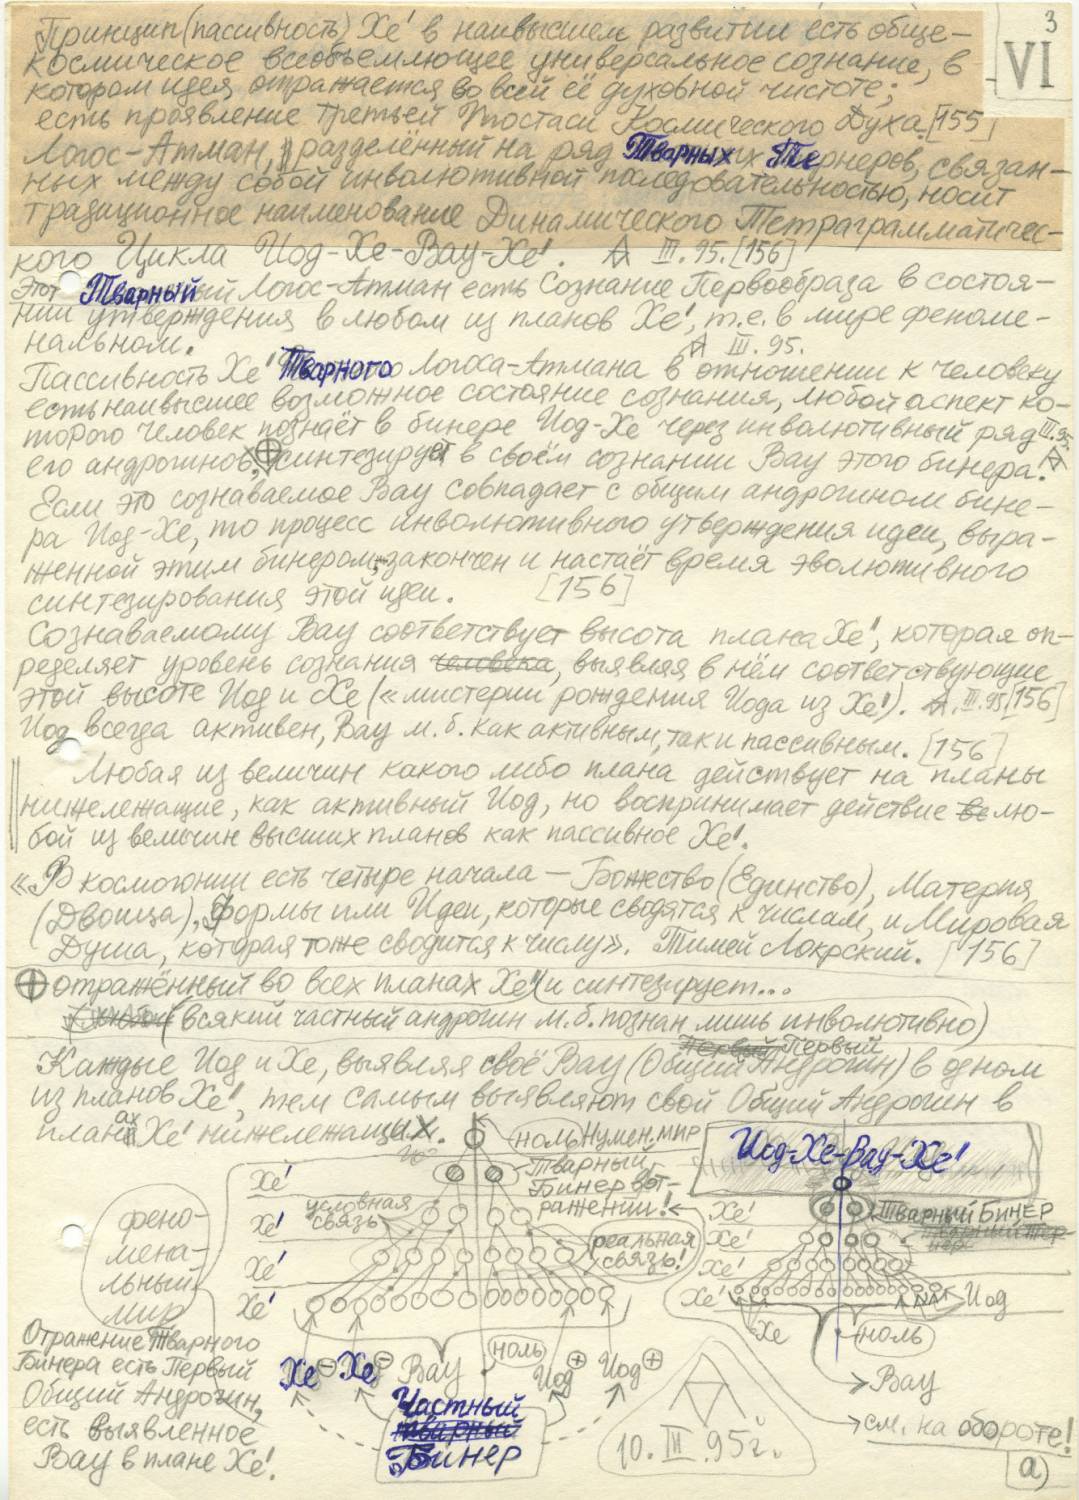 3
VI
Принцип (пассивность) Хе' в наивысшем развитии есть обще-
космическое всеобъемлющее универсальное сознание, в
котором идея отражается во всей её духовной чистоте;
есть проявление третьей Ипостаси Космического Духа. [155]
Логос-Атман, разделённый на ряд Тварных Тернеров, связан-
ных между собой инволютивной последовательностью, носит
традиционное наименование Динамического Тетраграмматичес-
кого Цикла Иод-Хе-Вау-Хе'. III.95. [156]
Этот Тварный Логос-Атман есть Сознание Первообраза в состоя-
нии утверждения в любом из планов Хе', т.е. в мире феноме-
нальном. III.95.
Пассивность Хе' Тварного Логоса-Атмана в отношении к человеку
есть наивысшее возможное состояние сознания, любой аспект ко-
торого человек познаёт в бинере Иод-Хе через инволютивный ряд III.95.
его андрогинов, ⊕ синтезирует в своём сознании Вау этого бинера.
Если это сознаваемое Вау совпадает с общим андрогином бине-
ра Иод-Хе, то процесс инволютивного утверждения идеи, выра-
женной этим бинером, закончен и настаёт время эволютивного
синтезирования этой идеи. [156]
Сознаваемому Вау соответствует высота плана Хе', которая оп-
ределяет уровень сознания человека, выявляя в нём соответствующие
этой высоте Иод и Хе («мистерии рождения Иода из Хе'). III.95 [156]
Иод всегда активен, Вау м.б. как активным, так и пассивным. [156]
Любая из величин какого либо плана действует на планы
нижележащие, как активный Иод, но воспринимает действие лю-
бой из величин высших планов как пассивное Хе'.
«В космогонии есть четыре начала — Божество (Единство), Материя
(Двоица), Формы или Идеи, которые сводятся к числам, и Мировая
Душа, которая тоже сводится к числу». Тимей Локрский. [156]
⊕ отражённый во всех планах Хе' (и синтезирует...
(всякий частный андрогин м.б. познан лишь инволютивно)
Первый Первый
Каждые Иод и Хе, выявляя своё Вау (Общий Андрогин) в одном
из планов Хе', тем самым выявляют свой Общий Андрогин в
планах Хе' нижележащих.
ноль Нумен. мир
Тварный
Бинер в от-
ражении!
Хе'
Хе'
Хе'
Хе'
условная
связь
реальная
связь!
фено-
мена-
льный
мир
Иод-Хе-Вау-Хе'
Тварный Бинер
Хе'
Хе'
Хе'
Хе'
Иод
Хе
ноль
Вау
Отражение Тварного
Бинера есть Первый
Общий Андрогин,
есть выявленное
Вау в плане Хе'.
Хе −
Хе −
Вау
ноль
Иод +
Иод +
Частный
тварный
Бинер
10.III.95г.
см. на обороте!
а)